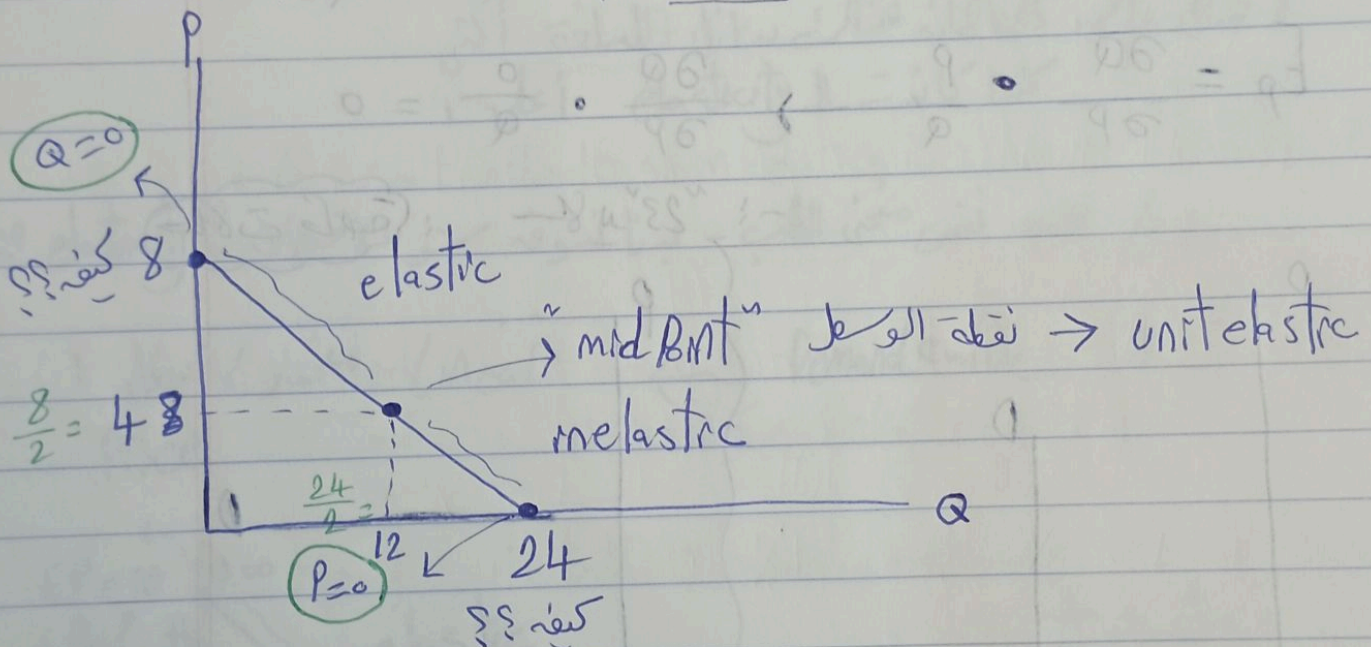 P
Q=0
كيف؟؟ 8
elastic
"mid Point" نقطة الوسط → unit elastic
8/2 = 4
inelastic
24/2 =
12
24
Q
P=0
كيف؟؟